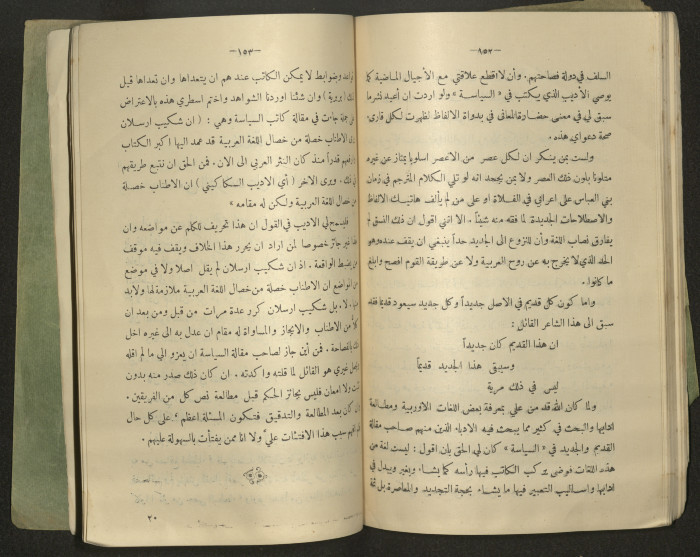 —٩٥٢—
السلف في دولة فصاحتهم. وأن لا اقطع علاقتي مع الأجيال الماضية كما
يوصي الأديب الذي يكتب في «السياسة» ولو اردت ان أعيد شرما
سبق لي في معنى حضارة المعاني في بداوة الالفاظ لظهرت لكل قارئ
صحة دعواي هذه.
ولست بمن ينكر ان لكل عصر من الاعصر اسلوبا يمتاز عن غيره
متلونا بلون ذلك العصر ولا بمن يجحد انه لو تلي الكلام المترجم في زمان
بني العباس على اعرابي في الفلاة او على من لم يألف هاتيك الالفاظ
والاصطلاحات الجديدة لما فقه منه شيئاً. الا انني اقول ان ذلك النسق لم
يفارق نصاب اللغة وأن للنزوع الى الجديد حداً ينبغي ان يقف عنده وهو
الحد الذي لا يخرج به عن روح العربية ولا عن طريقة القوم افصح وابلغ
ما كانوا.
واما كون كل قديم في الاصل جديداً وكل جديد سيعود قديما فقد
سبق الى هذا الشاعر القائل:
ان هذا القديم كان جديداً
وسيبقى هذا الجديد قديماً
ليس في ذلك مرية
ولما كان الله قد من علي بمعرفة بعض اللغات الاوربية ومطالعة
آدابها والبحث في كثير مما يبحث فيه الادباء الذين منهم صاحب مقالة
القديم والجديد في «السياسة» كان لي الحق بان اقول: ليست لغة من
هذه اللغات فوضى يركب الكاتب فيها رأسه كما يشاء ويغير ويبدل في
آدابها واساليب التعبير فيها ما يشاء بحجة التجديد والمعاصرة بل ثمة
—١٥٣—
وضوابط لا يمكن الكاتب عندهم ان يتعداها وان تعداها قيل
(بربرية) وان شئنا اوردنا الشواهد واختم اسطري هذه بالاعتراض
على جملة جاءت في مقالة كاتب السياسة وهي: (ان شكيب ارسلان
الاطناب خصلة من خصال اللغة العربية قد عمد اليها اكبر الكتاب
قدراً منذ كان النثر العربي الى الان. فمن الحق ان نتبع طريقهم
ذلك. ويرى الاخر (أي الاديب السكاكيني) ان الاطناب خصلة
من خصال اللغة العربية ولكن له مقامه»
فليسمح لي الاديب في القول ان هذا تحريف للكلم عن مواضعه وان
غير جائز خصوصا لمن اراد ان يحرر هذا الخلاف ويقف فيه موقف
من يضبط الواقعة. اذ ان شكيب ارسلان لم يقل اصلا ولا في موضع
من المواضع ان الاطناب خصلة من خصال اللغة العربية ملازمة لها ولا بد
منها. لا، بل شكيب ارسلان كرر عدة مرات من قبل ومن بعد ان
كلاً من الاطناب والايجاز والمساواة له مقام ان عدل به الى غيره اخل
ذلك بالفصاحة. فمن أين جاز لصاحب مقالة السياسة ان يعزو الي ما لم اقله
غيري هو القائل لما قلته واكدته. ان كان ذلك صدر منه بدون
ولا امعان فليس بجائز الحكم قبل مطالعة نص كل من الفريقين.
كان بعد المطالعة والتدقيق فتكون المسئلة اعظم، على كل حال
سبب هذا الافتئات علي ولا انا ممن يفتأت بالسهولة عليهم.
٢٠